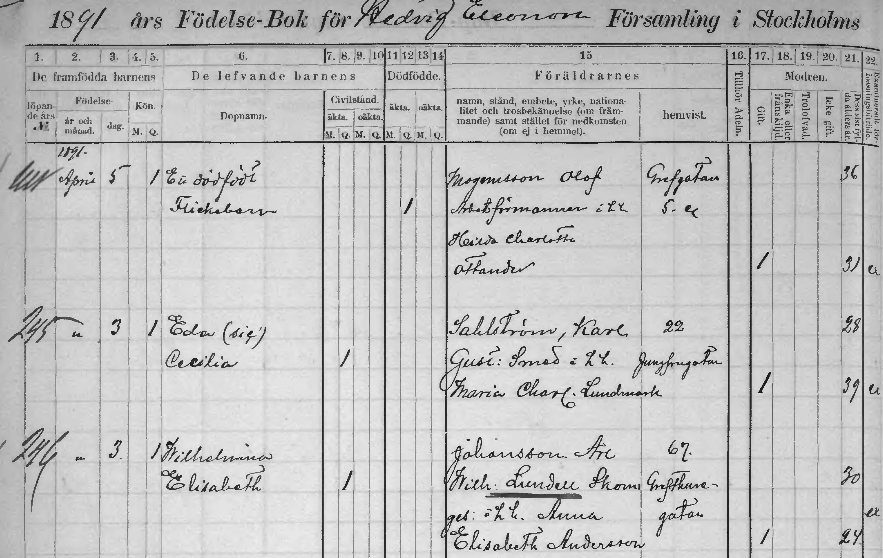 1891 års Födelse-Bok för Hedvig Eleonora Församling i Stockholms
1. 2. 3. 4. 5. 6. 7. 8. 9. 10 11 12 13 14 15 16. 17. 18. 19. 20. 21. 22.
De framfödda barnens De lefvande barnens Dödfödde. Föräldrarnes Tillhör Adeln. Modren.
löpande års № Födelse- år och månad. dag. Kön. M. Q. Dopnamn. Civilstånd. äkta. oäkta. M. Q. M. Q. äkta. oäkta. M. Q. M. Q. namn, stånd, embete, yrke, nationalitet och trosbekännelse (om främmande) samt stället för nedkomsten (om ej i hemmet). hemvist. Gift. Enka eller frånskild. Trolofvad. Icke gift.
1891.
April 5 1 Ett dödfödt Magnusson Olof Grefgatan 36
Flickebarn 1 Arbetsförmannen 5.
Hilda Charlotta
1 31
245 " 3 1 Eda (sic!) Sahlström, Karl 22 28
Cecilia 1 Gust: Smed Jungfrugatan
Maria Charl. Lundmark 1 39
246 " 3. 1 Wilhelmina Johansson 67.
Elisabeth 1 Wilh: Lundell Skom Grefthure- 30
ges: Anna gatan
Elisabeth Andersson 1 24